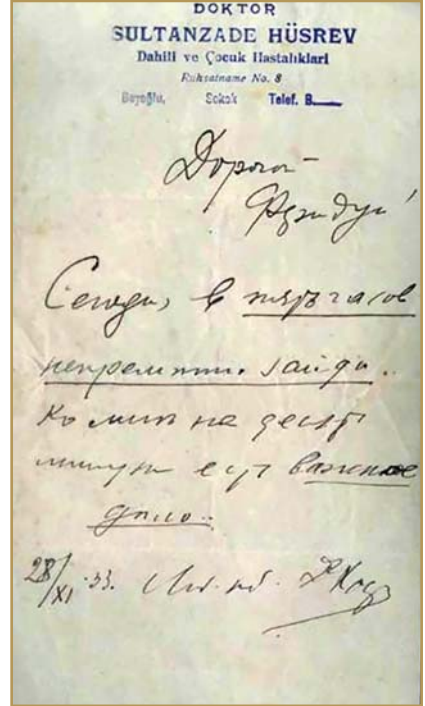 DOKTOR
SULTANZADE HÜSREV
Dahili ve Çocuk Hastalıkları
Ruhsatname No. 8
Beyoğlu, Sokak Telef. B.
Дорогой
Феридун!
Сегодня, в пять часов
непременно зайди
ко мнѣ на десять
минутъ есть важное
дѣло.
28/XI.33.